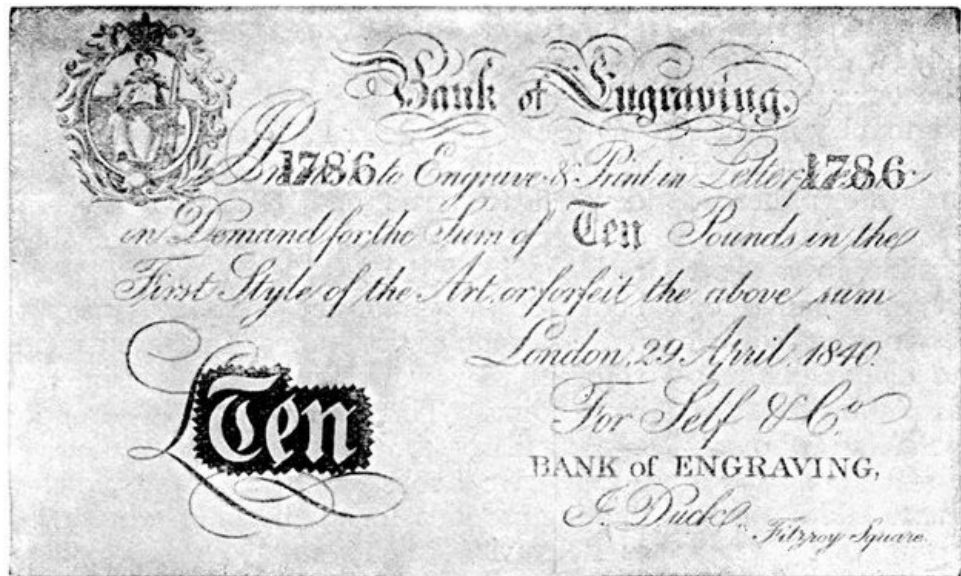 Bank of Engraving.
1786 to Engrave & Print in 1786
in Demand for the Sum of Ten Pounds in the
First Style of the Art, or forfeit the above sum
London, 29 April, 1840.
£Ten
For Self & Co.
BANK of ENGRAVING,
J. Duck.
Fitzroy Square.